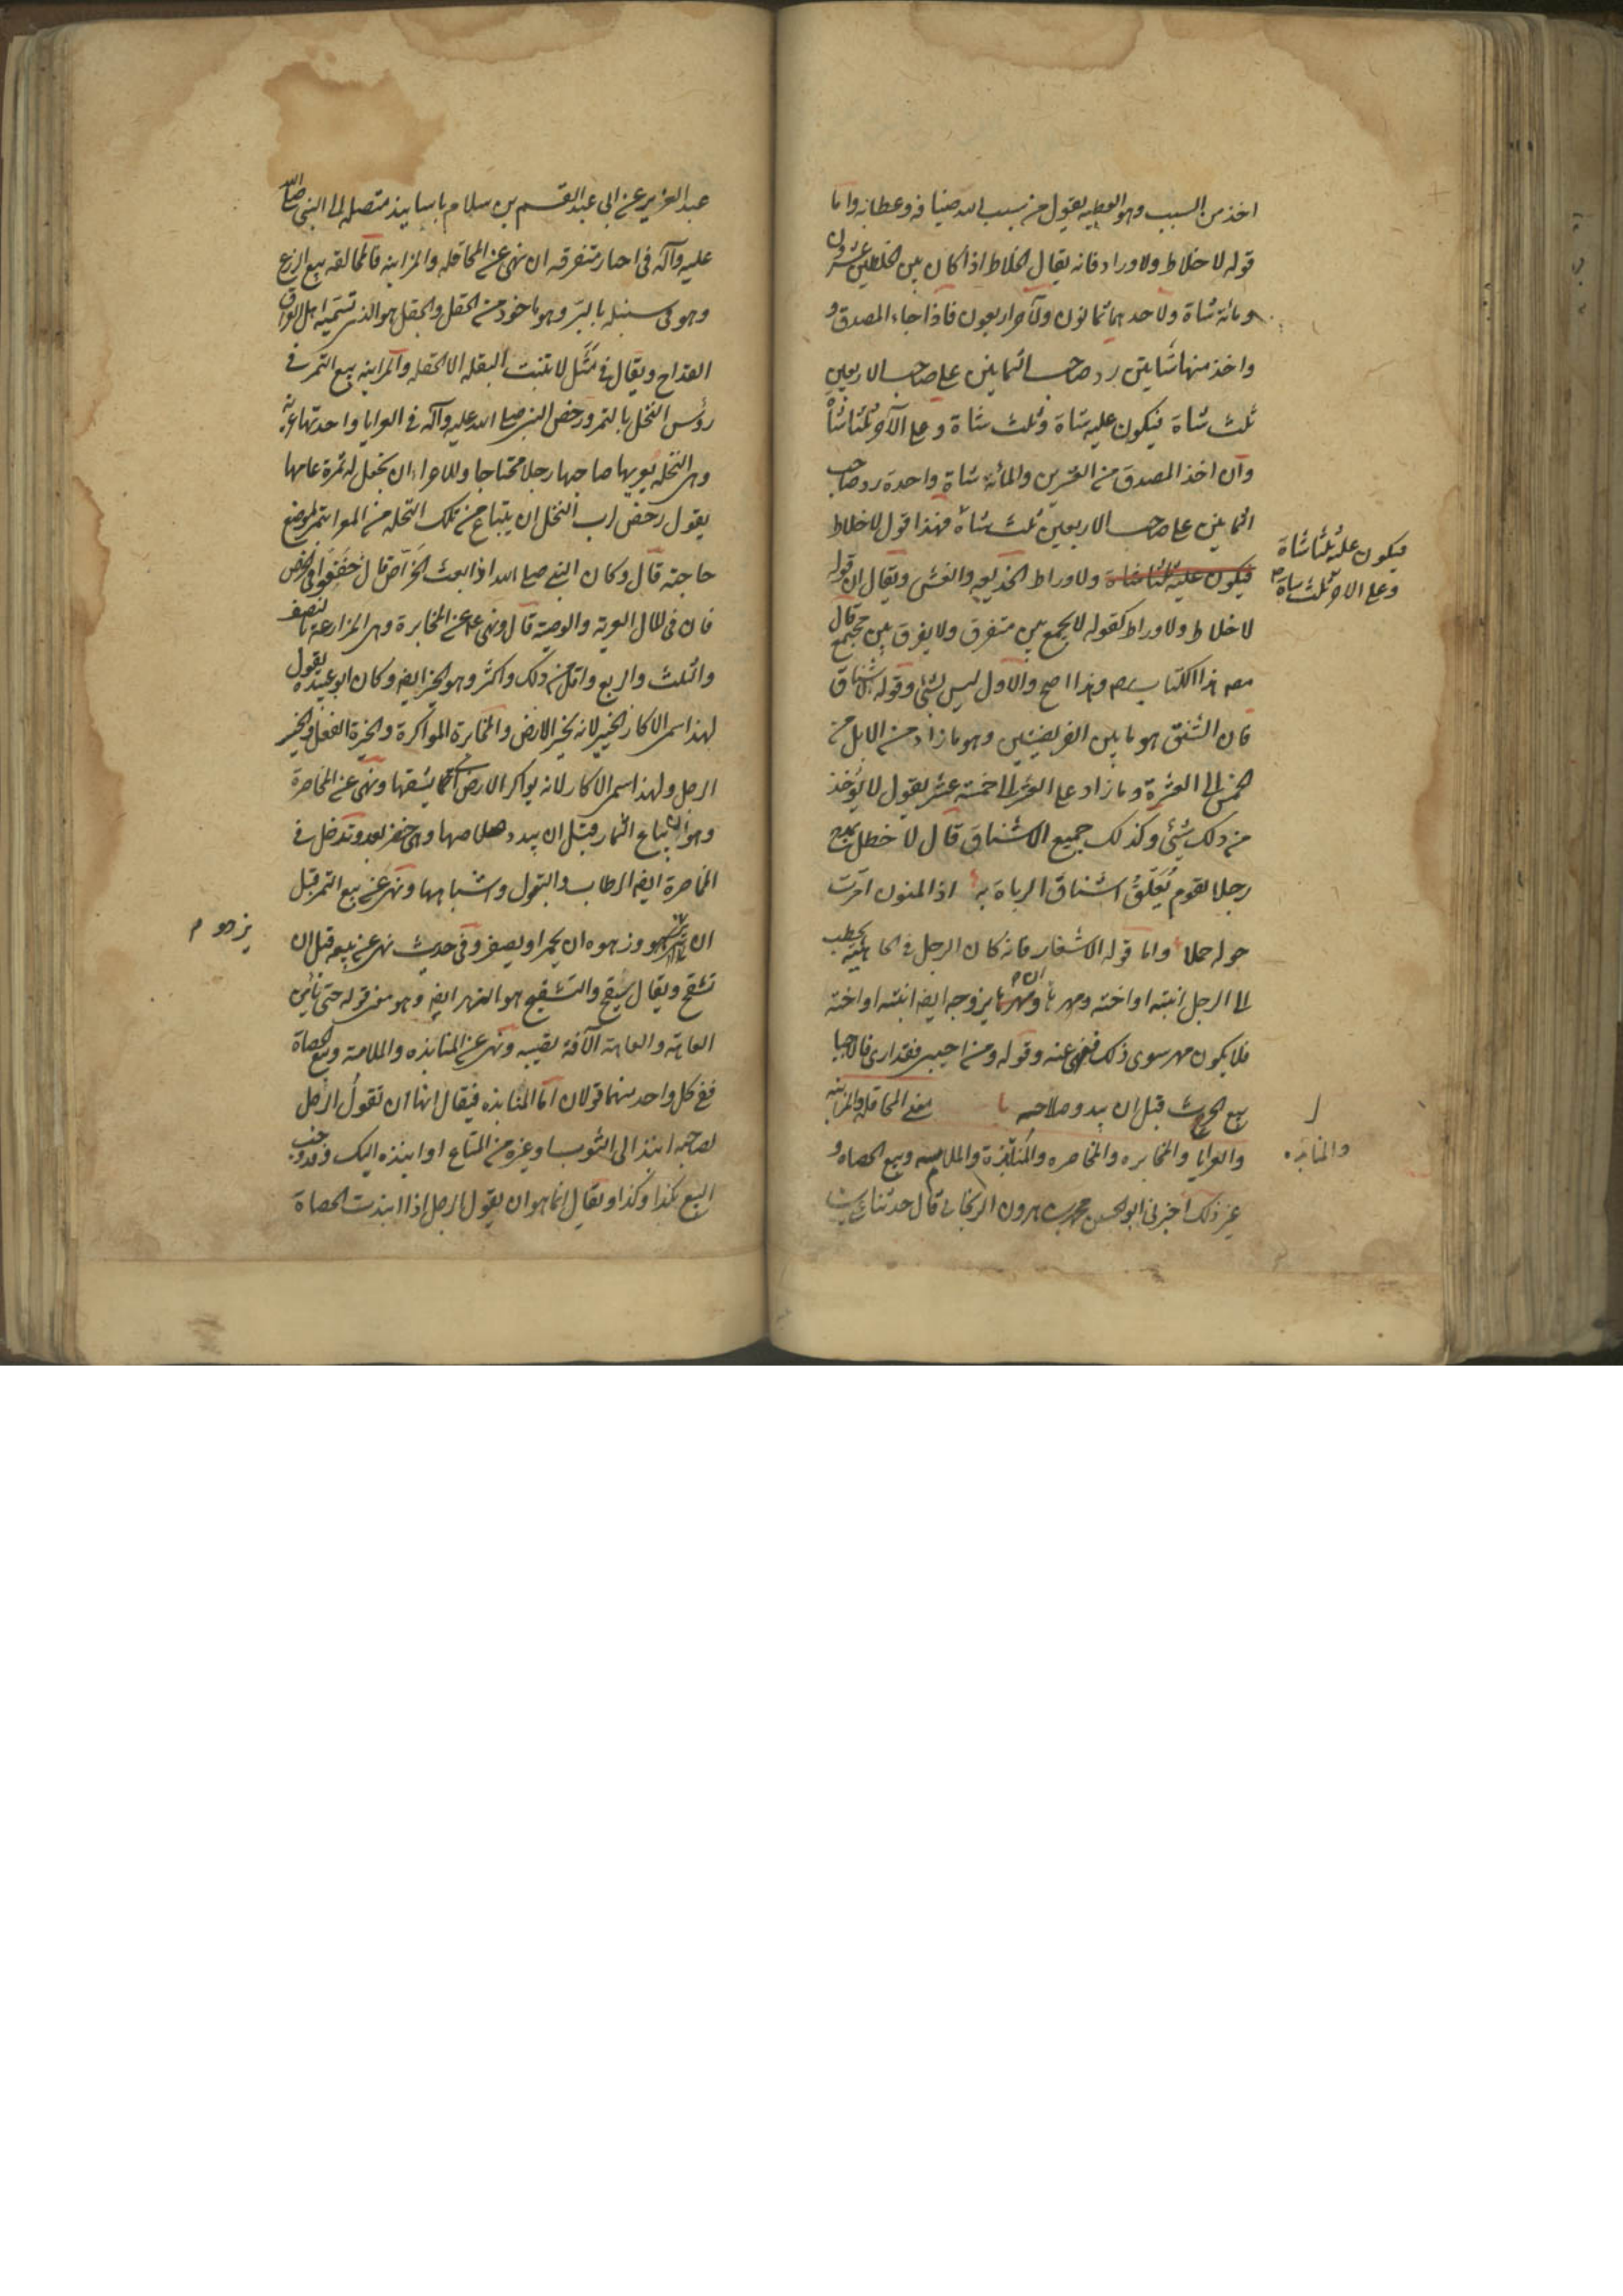 اخذ من السبب وهو العطيه يقول من سبب الله ضيافه وعطائه واما
قوله لا خلاط ولا وراد فانه يقال الخلاط اذا كان بين الخلطين عشرون
ومائة شاة ولاحدهما ثمانون وللآخر اربعون فاذا جاء المصدق و
واخذ منها شاتين رد صاحب الثمانين على صاحب الاربعين
ثلث شاة فيكون عليه شاة وثلث شاة وعلى الآخر ثلثا شاة
وان اخذ المصدق من العشرين والمائة شاة واحدة رد صاحب
الثمانين على صاحب الاربعين ثلث شاة فهذا قول لا خلاط
فيكون عليه ثلثا شاة ولا وراط الخديعه والغش ويقال ان قوله
فيكون عليه ثلثا شاة
وعلى الاخر ثلث شاة
لا خلاط ولا وراط كقوله لا يجمع بين متفرق ولا يفرق بين مجتمع قال
مصـ هذا الكتاب ره وهذا اصح والاول ليس بشئ وقوله لا شناق
فان الشنق هو ما بين الفريضتين وهو ما زاد من الابل من
الخمس الى العشرة وما زاد على العشر الى خمسة عشر يقول لا يؤخذ
من ذلك شئ وكذلك جميع الاشناق قال لا خطل يمدح
رجلا لقوم تُعَلّقُ اشناق الدياة به اذا المنون امرت
حوله حملا واما قوله لا شغار فانه كان الرجل في الجاهلية يخطب
الى الرجل ابنته او اخته ومهرها ان يزوجه ايضا ابنته او اخته
فلا يكون مهر سوى ذلك فنهى عنه وقوله ومن اجبى فقد اربى فالاجبا
بيع الحرث قبل ان يبدو صلاحه معنى المحاقله والمزابنه
والعرايا والمخابره والمخاضره والمنابذة والملامسه وبيع الحصاه و
والمنابذه
غير ذلك اخبرني ابو الحسين محمد بن هرون الزنجاني قال حدثنا علي بن
عبد العزيز عن ابي عبد القسم بن سلام باسانيد متصله الى النبي صلى الله
عليه وآله في اخبار متفرقه ان نهى عن المحاقله والمزابنه فالمحاقله بيع الزرع
وهو في سنبله بالبر وهو ماخوذ من الحقل والحقل هو الذى تسميه اهل العراق
القداح ويقال في مثل لا تنبت البقله الا الحقله والمزابنه بيع التمر في
رؤس النخل بالتمر ورخص النبي صلى الله عليه وآله في العرايا واحدتها عرية
وهى النخله يعريها صاحبها رجلا محتاجا والاعراء ان يجعل له ثمرة عامها
يقول رخص لرب النخل ان يبتاع من تلك النخله من المعرا بتمر لموضع
حاجته قال وكان النبي صلى الله اذا بعث الخَرّاص قال خَفّفُوا في الخرص
فان في المال العرية والوصية قال ونهى ع عن المخابرة وهى المزارعة بالنصف
والثلث والربع واقل من ذلك واكثر وهو الخبر ايضا وكان ابو عبيده يقول
لهذا سمى الاكار الخبير لانه يخبر الارض والمخابرة المواكرة والخبرة الفعل والخبير
الرجل ولهذا سمى الاكار لانه يواكر الارض اى يشقها ونهى عن المخاضرة
وهو ان يباع الثمار قبل ان يبدو صلاحها وهى خضر بعد وتدخل في
المخاضرة ايضا الرطاب والبقول واشباهها ونهى عن بيع التمر قبل
ان يزهو وزهوه ان يحمر او يصفر وفى حديث نهى عن بيعه قبل ان
يزهو م
تشقح ويقال يشقح والتشقيح هو الزهو ايضا وهو معنى قوله حتى تأمن
العاهة والعاهة الآفة تصيبه ونهى عن المنابذه والملامسة وبيع الحصاة
ففى كل واحد منهما قولان اما المنابذه فيقال انها ان تقول الرجل
لصاحبه انبذ الى الثوب او غيره من المتاع او انبذه اليك وقد وجب
البيع بكذا وكذا ويقال انما هو ان يقول الرجل اذا انبذت الحصاة